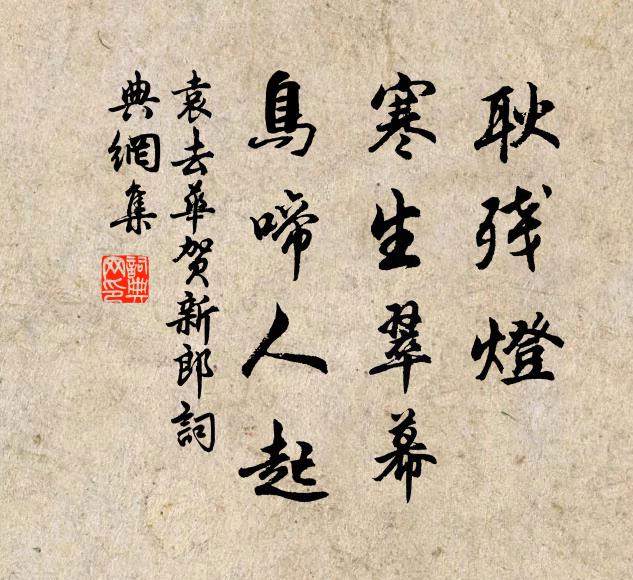 耿残燈
寒生翠幕
鳥啼人起
袁去華賀新郎詞
典網集
詞典网印